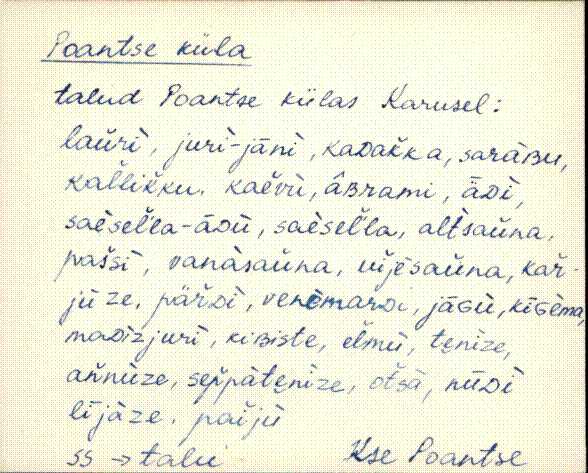 Poantse küla
talud Poantse külas Karusel:
laùri, juri-jāni, kaᴅak̆ka, sarāʙu,
kal̆lik̆ku. kaèvri, âʙrami, ǟᴅi,
saèsel̆la-āᴅù, saèsel̆la, al̀tsaùna,
paššì, vanàsaùna, uìjesaùna, kar̆-
jùze, pär̆ᴅi, venèmarᴅi, jāɢù, kiɢèma,
maᴅizjuri, kiʙiste, el̆mù, tęnize,
an̆nùze, sep̆pàtęnize, ot̆sà, nùᴅi
lijàze. paijù
ss → talu Kse Poantse